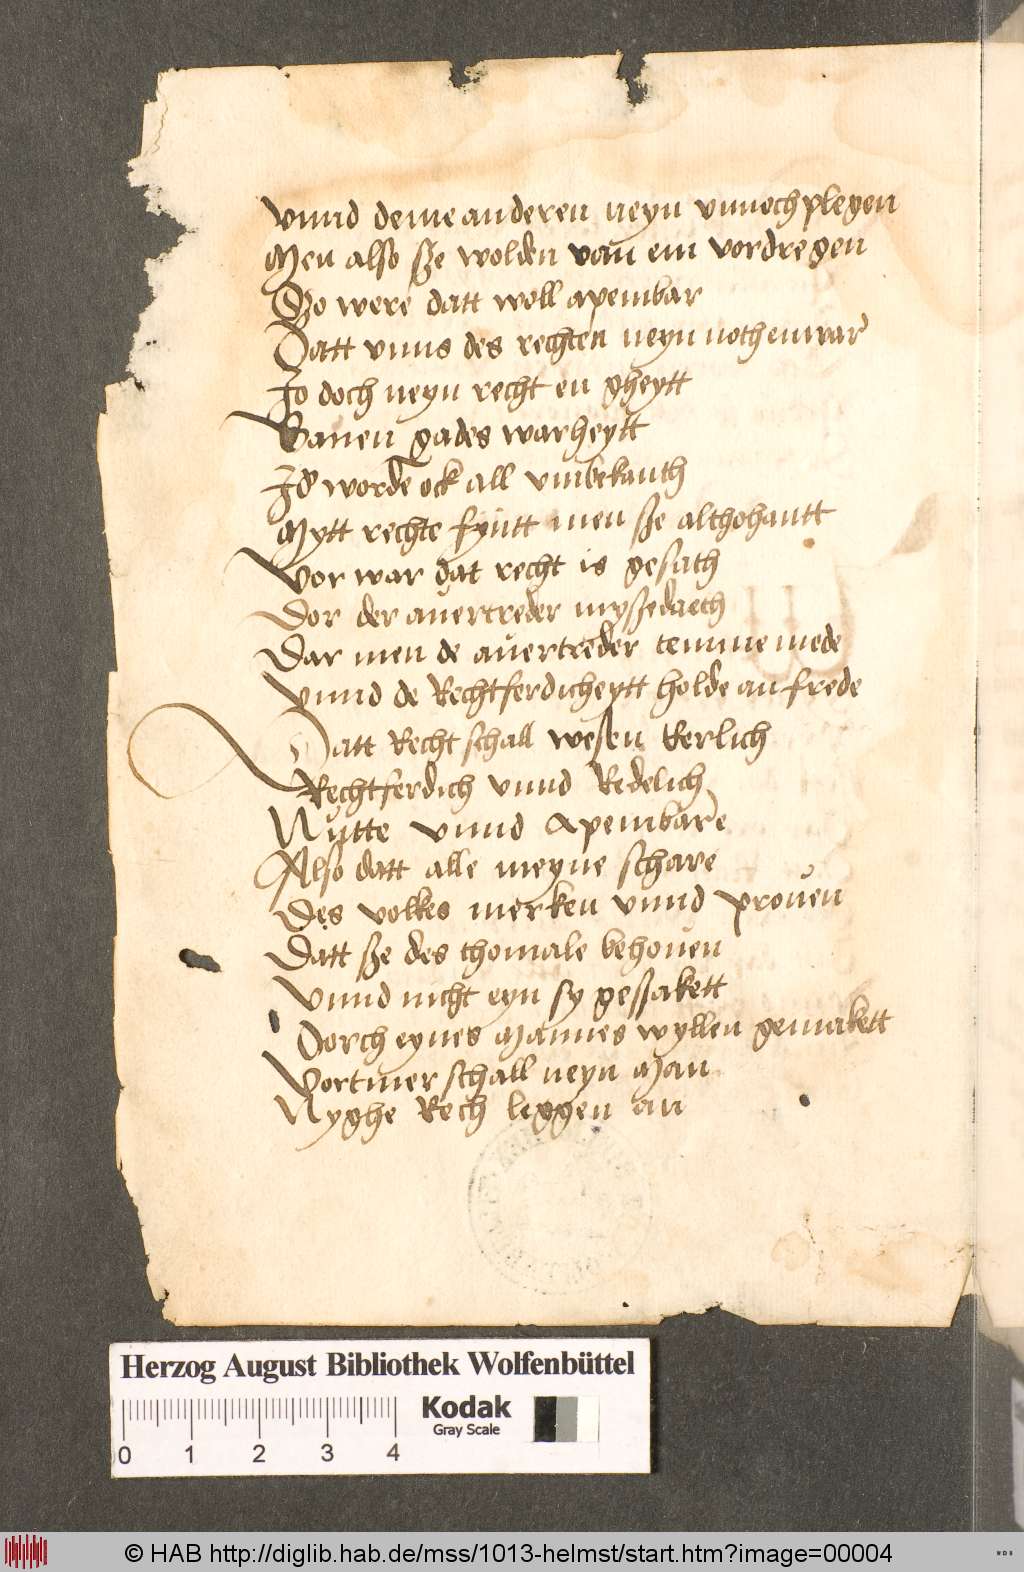 Vnnd deme anderen neyn vnuoch plegen
Men also sze wolden van em vordregen
So were datt woll apembar
Datt vnns des rechten neyn noth enwar
Jo doch neyn recht en gheytt
Bauen gades warheytt
Jd worde ock all vmbekanth
Mytt rechte fyntt men sze althohantt
Vor war dat recht is gesath
Dor der auertreder myszedaeth
Dar men de auertreder temme mede
Vnnd de Rechtferdicheytt holde an frede
Datt Recht schall wesen Eerlich
Rechtferdich vnnd Redelich
Nutte vnnd Apembare
Also datt alle meyne schare
Des volkes merken vnnd prouen
Datt sze des thomale behouen
Vnnd nicht eyn sy gessakett
Dorch eynes Mannes wyllen gemakett
Vortmer schall neyn Man
Nyghe Rech leggen an
Herzog August Bibliothek Wolfenbüttel
Kodak
Gray Scale
0 1 2 3 4
© HAB http://diglib.hab.de/mss/1013-helmst/start.htm?image=00004